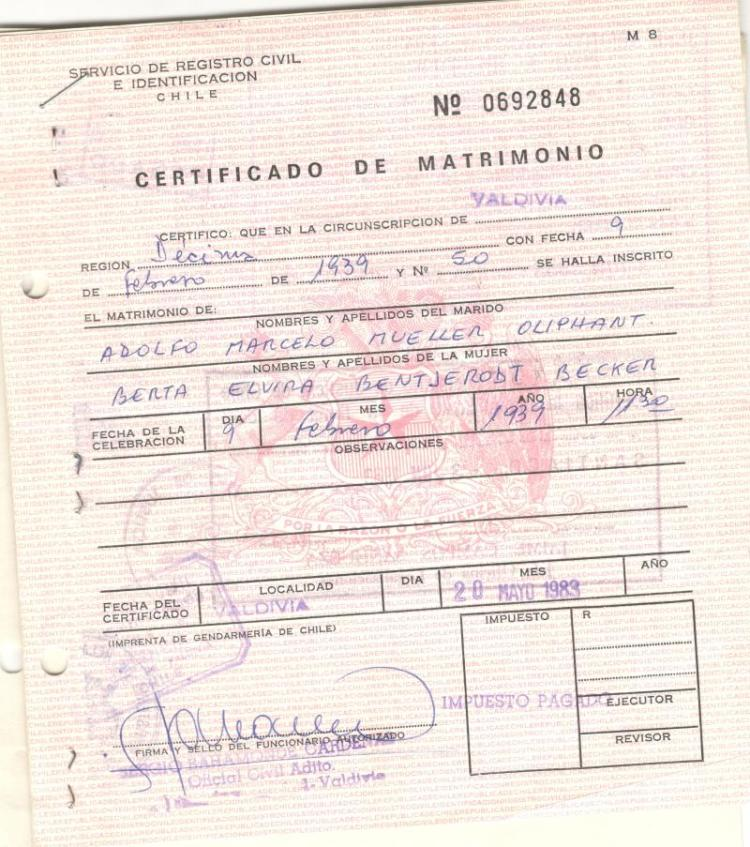 M 8
SERVICIO DE REGISTRO CIVIL
E IDENTIFICACION
CHILE
Nº 0692848
CERTIFICADO DE MATRIMONIO
CERTIFICO: QUE EN LA CIRCUNSCRIPCION DE VALDIVIA
REGION Décima CON FECHA 9
DE febrero DE 1939 Y Nº 50 SE HALLA INSCRITO
EL MATRIMONIO DE:
NOMBRES Y APELLIDOS DEL MARIDO
ADOLFO MARCELO MUELLER OLIPHANT.
NOMBRES Y APELLIDOS DE LA MUJER
BERTA ELVIRA BENTJERODT BECKER
FECHA DE LA CELEBRACION DIA 9 MES febrero AÑO 1939 HORA 11.30
OBSERVACIONES
POR LA RAZON O LA FUERZA
FECHA DEL CERTIFICADO LOCALIDAD VALDIVIA DIA MES AÑO 20 MAYO 1983
(IMPRENTA DE GENDARMERÍA DE CHILE)
IMPUESTO R
IMPUESTO PAGADO
EJECUTOR
REVISOR
FIRMA Y SELLO DEL FUNCIONARIO AUTORIZADO
SERGIO BAHAMONDE CARDENAS
Oficial Civil Adjto.
1- Valdivia